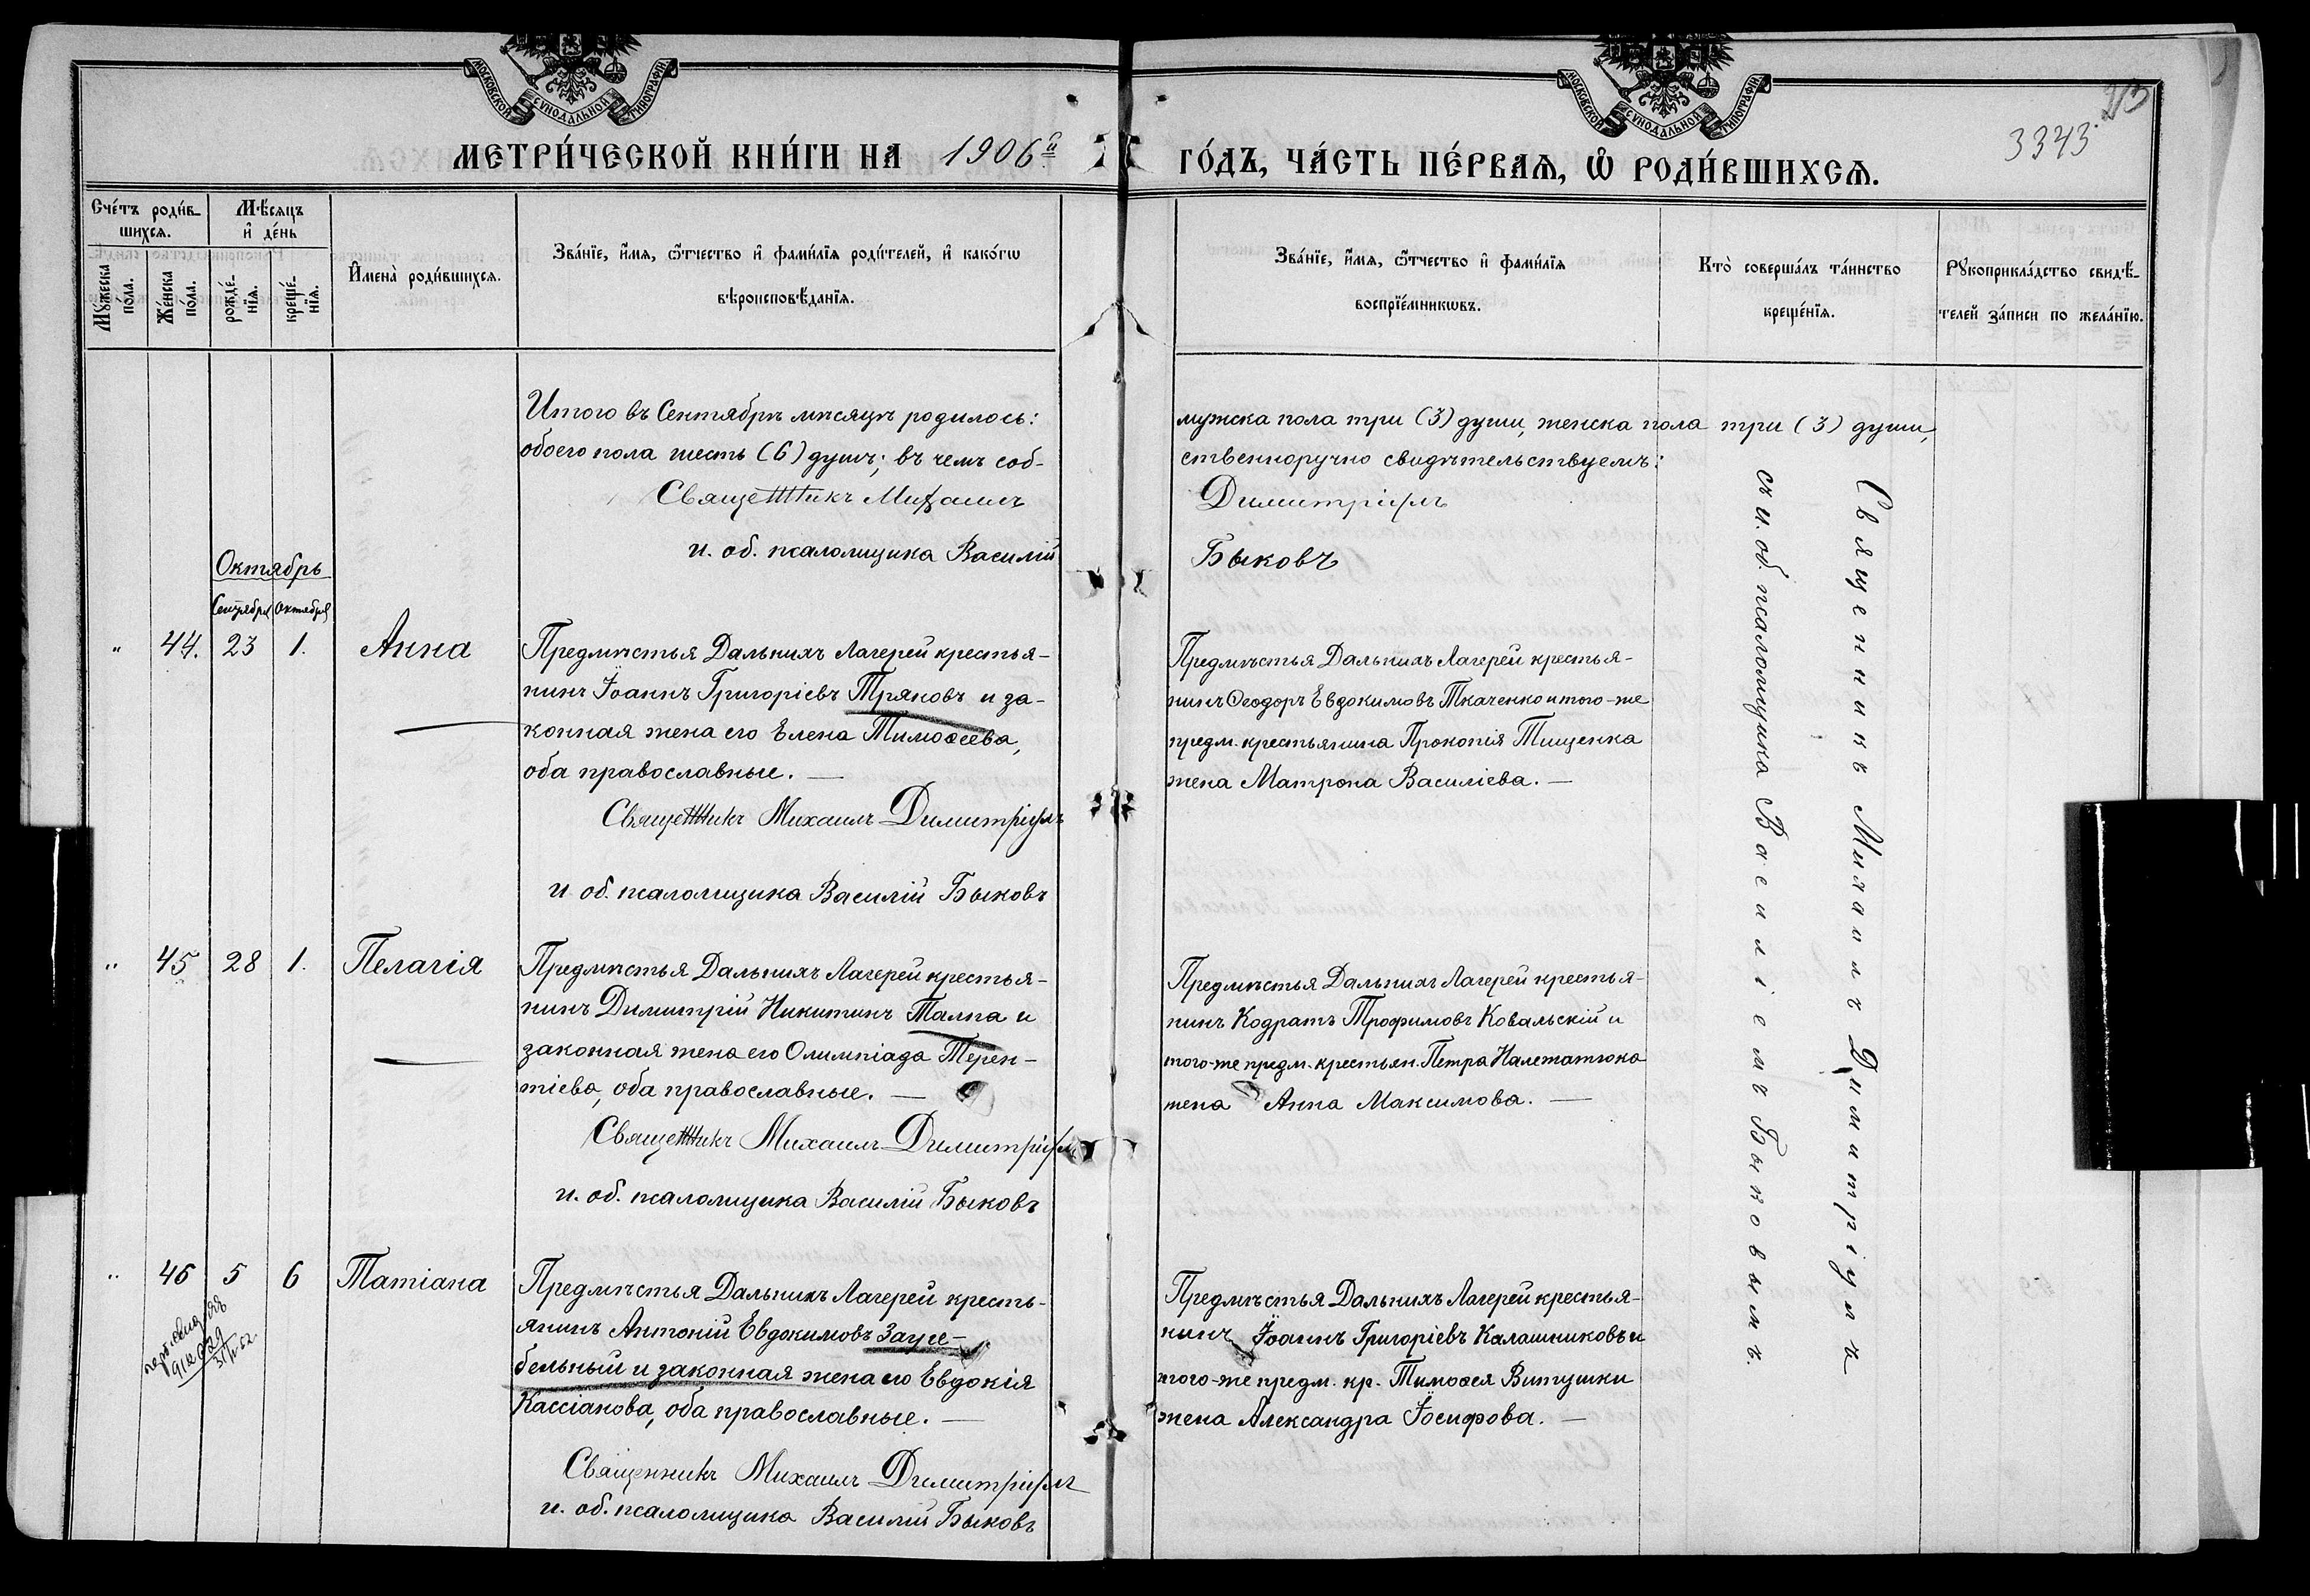 МОСКОВСКОЙ СѴНОДАЛЬНОЙ ТИПОГРАФІИ
МОСКОВСКОЙ СѴНОДАЛЬНОЙ ТИПОГРАФІИ
3343.
МЕТРИ́ЧЕСКОЙ КНИ́ГИ НА 1906й ГО́ДЪ, ЧА́СТЬ ПЕ́РВАѦ, Ѡ РОДИ́ВШИХСѦ.
Сче́тъ роди́вшихсѧ.
Мꙋ́жеска по́ла.
Же́нска по́ла.
Мѣ́сѧцъ и҆ де́нь
рожде́нїѧ.
креще́нїѧ.
И҆мена̀ роди́вшихсѧ.
Зва́нїе, и҆́мѧ, ѻ҆́тчество и҆ фамі́лїѧ роди́телей, и҆ како́гѡ
вѣроисповѣ́данїѧ.
Зва́нїе, и҆́мѧ, ѻ҆́тчество и҆ фамі́лїѧ
воспрїе́мникѡвъ.
Кто̀ соверша́лъ та́инство
креще́нїѧ.
Рꙋкоприкла́дство свидѣ́-
телей за́писи по жела́нїю.
Итого въ Сентябрѣ мѣсяцѣ родилось: мужска пола три (3) души, женска пола три (3) души,
обоего пола шесть (6) душъ; въ чемъ соб- ственноручно свидѣтельствуемъ:
Священникъ Михаилъ Димитріулъ
и. об. псаломщика Василій Быковъ
Октябрь
Сентября Октября
" 44. 23 1. Анна
Предмѣстья Дальнихъ Лагерей крестья-
нинъ Іоаннъ Григоріевъ Тряновъ и за-
конная жена его Елена Тимоѳеева,
оба православные. —
Священникъ Михаилъ Димитріулъ
и. об. псаломщика Василій Быковъ
Предмѣстья Дальнихъ Лагерей крестья-
нинъ Ѳеодоръ Евдокимовъ Ткаченко и того-же
предм. крестьянина Прокопія Тищенка
жена Матрона Василіева. —
" 45 28 1. Пелагія
Предмѣстья Дальнихъ Лагерей крестья-
нинъ Димитрій Никитинъ Талпа и
законная жена его Олимпіада Терен-
тіева, оба православные. —
Священникъ Михаилъ Димитріулъ
и. об. псаломщика Василій Быковъ
Предмѣстья Дальнихъ Лагерей крестья-
нинъ Кодратъ Трофимовъ Ковальскій и
того-же предм. крестьян. Петра Налетатюка
жена Анна Максимова. —
" 46 5 6 Татіана
Предмѣстья Дальнихъ Лагерей кресть-
янинъ Антоній Евдокимовъ Зауре-
бельный и законная жена его Евдокія
Кассіанова, оба православные. —
Священникъ Михаилъ Димитріулъ
и. об. псаломщика Василій Быковъ
Предмѣстья Дальнихъ Лагерей крестья-
нинъ Іоаннъ Григоріевъ Калашниковъ и
того-же предм. кр. Тимоѳея Витушки
жена Александра Іосифова. —
Священникъ Михаилъ Димитріулъ
съ и. об. псаломщика Василіемъ Быковымъ.